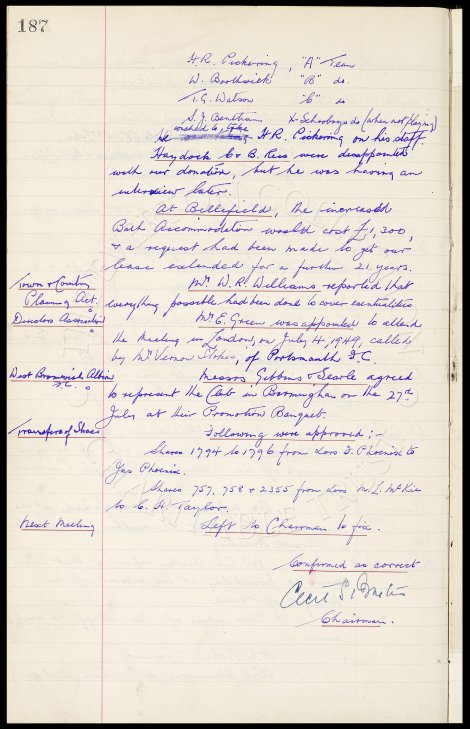 187
H.R. Pickering, "A" Team
W. Borthwick "B" do.
T.G. Watson "C" do
S.J. Bentham X-Schoolboys do (when not playing)
wished to take
He H R. Pickering on his staff.
Haydock C & B. Recs were disappointed
with our donation, but he was having an
interview later.
At Bellefield, the increased
Bath Accommodation would cost £1,300,
& a request had been made to get our
lease extended for a further 21 years.
Town & Country
Planning Act.
Mr. W.R. Williams reported that
everything possible had been done to cover eventualities
Directors Association
Mr E. Green was appointed to attend
the Meeting in London, on July 4, 1949, called
by Mr Vernon Stokes, of Portsmouth F.C.
West Bromwich Albion
F.C.
Messrs Gibbins & Searle agreed
to represent the Club in Birmingham on the 27th
July at their Promotion Banquet.
Transfers of Shares
Following were approved :-
Shares 1794 to 1796 from Exors J. Phoenix to
Jas Phoenix.
Shares 757, 758 & 2355 from Exors L. McKie
to C. H. Taylor.
Next Meeting
Left to Chairman to fix.
Confirmed as correct
Cecil S. Baxter
Chairman.